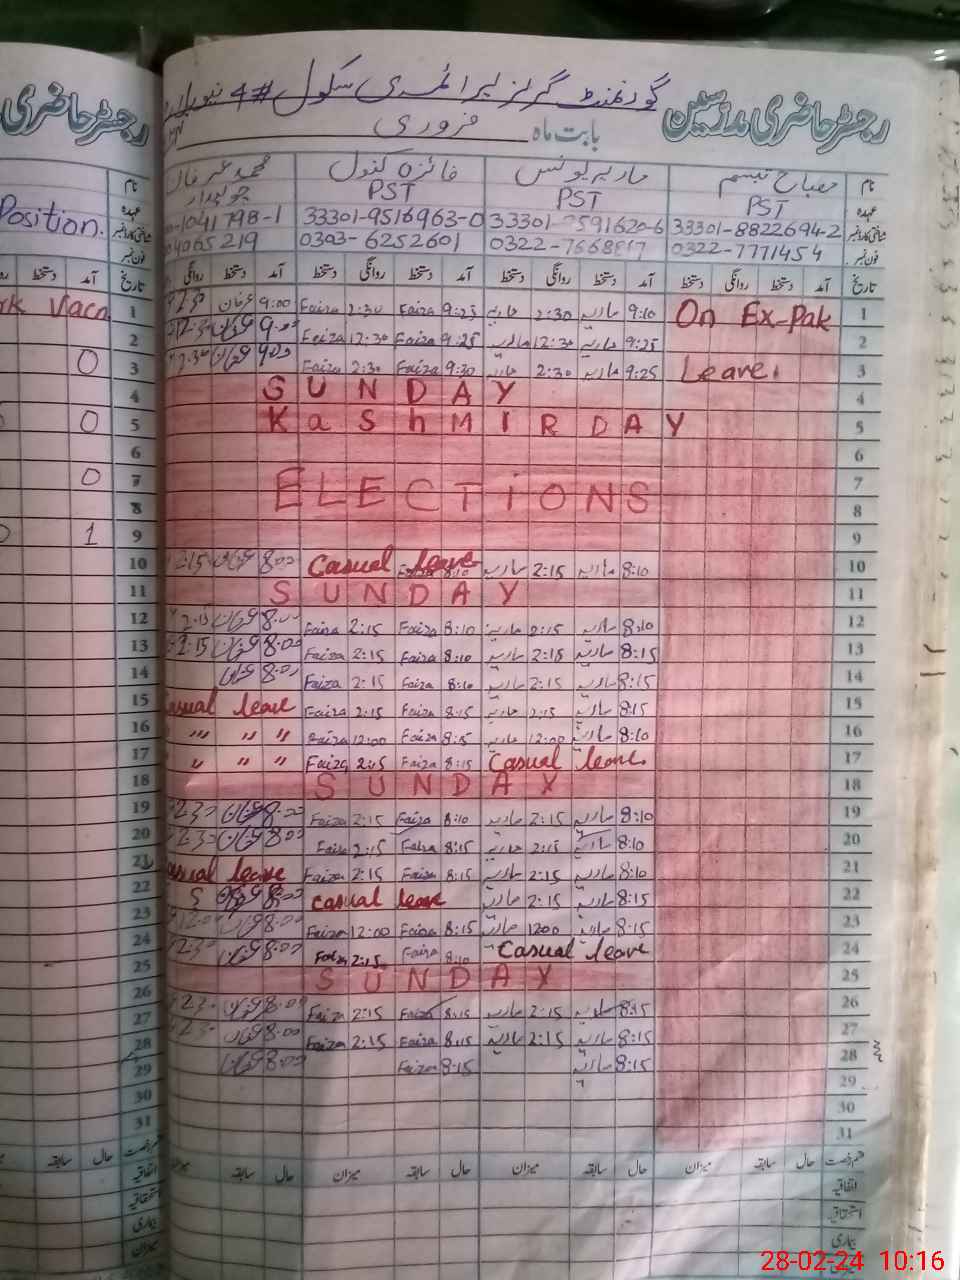 رجسٹر حاضری مدرسین
گورنمنٹ گرلز پرائمری سکول #4
بابت ماہ فروری
نام مصباح تبسم ماریہ یونس فائزہ کنول محمد عرفان
عہدہ PST PST PST چوکیدار
33301-8822694-2 33301- 591620-6 33301-9516963-0 1041798-1
فون نمبر 0322-7771454 0322-7668 0303-6252601 4065219
تاریخ آمد دستخط روانگی دستخط آمد دستخط روانگی دستخط آمد دستخط روانگی دستخط آمد دستخط روانگی
1 On Ex-Pak 9:10 ماریہ 2:30 ماریہ 9:25 Faiza 2:30 Faiza 9:00 عرفان
2 9:25 ماریہ 12:30 ماریہ 9:25 Faiza 12:30 Faiza 9:00 عرفان 12:30
3 Leave. 9:25 ماریہ 2:30 ماریہ 9:30 Faiza 2:30 Faiza 9:00 عرفان 2:30
4 SUNDAY
5 KaShMIR DAY
6
7 ELECTiONS
8
9
10 8:10 ماریہ 2:15 ماریہ Casual leave 8:00 عرفان 2:15
11 SUNDAY
12 8:10 ماریہ 2:15 ماریہ 8:10 Faiza 2:15 Faiza 8:00 عرفان 2:15
13 8:15 ماریہ 2:15 ماریہ 8:10 Faiza 2:15 Faiza 8:00 عرفان 2:15
14 8:15 ماریہ 2:15 ماریہ 8:10 Faiza 2:15 Faiza 8:00 عرفان
15 8:15 ماریہ 2:15 ماریہ 8:15 Faiza 2:15 Faiza Casual leave
16 8:10 ماریہ 12:00 ماریہ 8:15 Faiza 12:00 Faiza " " "
17 Casual leave. 8:15 Faiza 2:15 Faiza " " "
18 SUNDAY
19 8:10 ماریہ 2:15 ماریہ 8:10 Faiza 2:15 Faiza 8:00 عرفان 2:30
20 8:10 ماریہ 2:15 ماریہ 8:15 Faiza 2:15 Faiza 8:00 عرفان 2:30
21 8:10 ماریہ 2:15 ماریہ 8:15 Faiza 2:15 Faiza Casual leave
22 8:15 ماریہ 2:15 ماریہ Casual leave 8:00 عرفان
23 8:15 ماریہ 1200 ماریہ 8:15 Faiza 12:00 Faiza 8:00 عرفان 12:00
24 Casual leave 8:10 Faiza 2:15 Faiza 8:00 عرفان 2:30
25 SUNDAY
26 8:15 ماریہ 2:15 ماریہ 8:15 Faiza 2:15 Faiza 8:00 عرفان 2:30
27 8:15 ماریہ 2:15 ماریہ 8:15 Faiza 2:15 Faiza 8:00 عرفان 2:30
28 8:15 ماریہ 8:15 Faiza 8:00 عرفان
29
30
31
قسم رخصت حال سابقہ میزان حال سابقہ میزان حال سابقہ میزان حال سابقہ میزان
اتفاقیہ
استحقاقیہ
بیماری
رجسٹر حاضری
نام
عہدہ Position.
شناختی کارڈ نمبر
فون نمبر
تاریخ آمد دستخط
1 Vacn
2
3 0
4
5 0
6
7 0
8
9 1
10
11
12
13
14
15
16
17
18
19
20
21
22
23
24
25
26
27
28
29
30
31
قسم رخصت حال سابقہ
اتفاقیہ
استحقاقیہ
بیماری
میزان
28-02-24 10:16